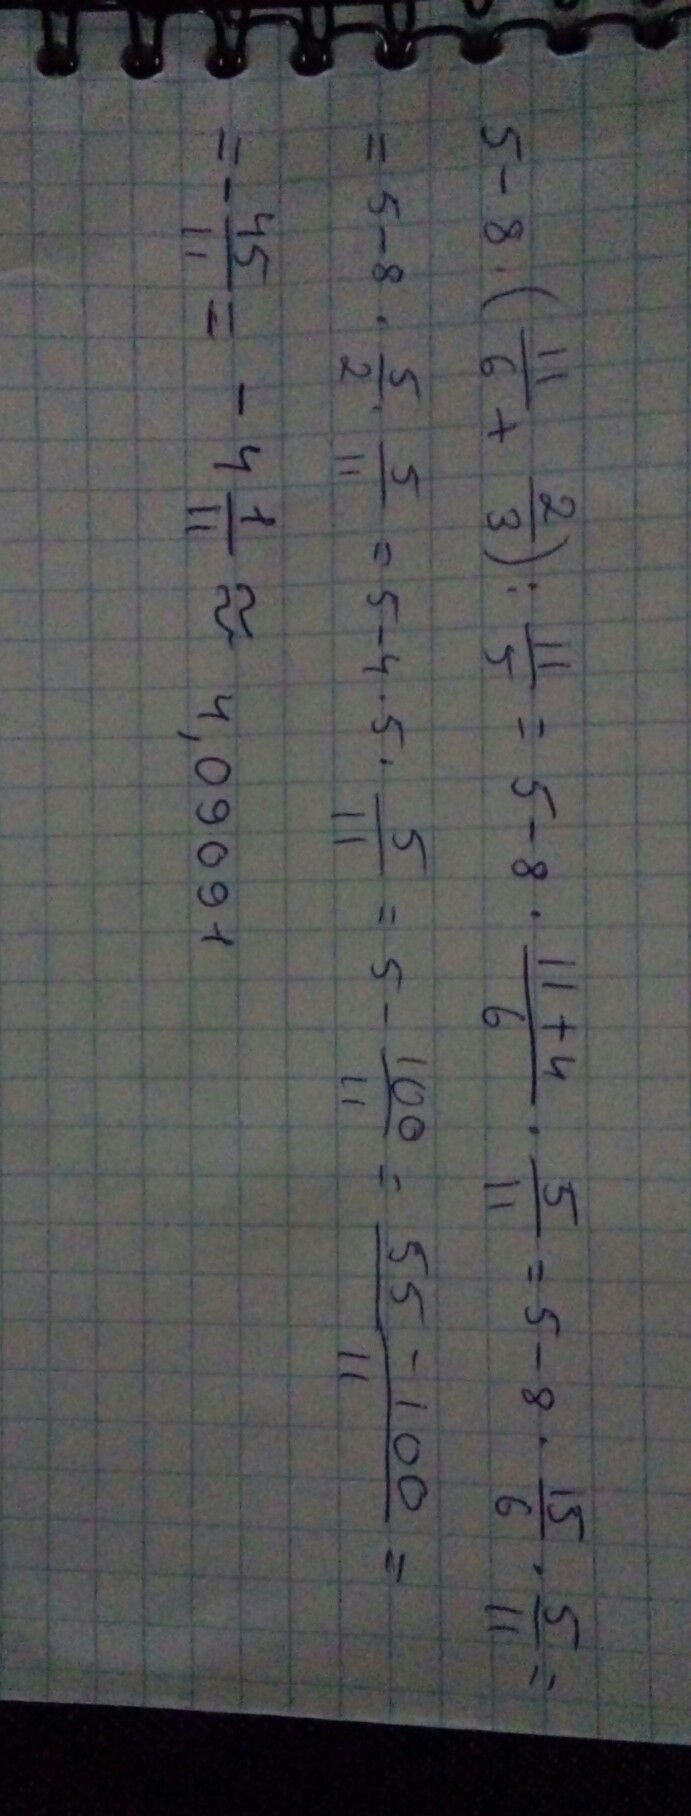 5 - 8 · (11/6 + 2/3) : 11/5 = 5 - 8 · (11+4)/6 · 5/11 = 5 - 8 · 15/6 · 5/11 =
= 5 - 8 · 5/2 · 5/11 = 5 - 4 · 5 · 5/11 = 5 - 100/11 = (55 - 100)/11 =
= - 45/11 = - 4 1/11 ≈ 4,09091